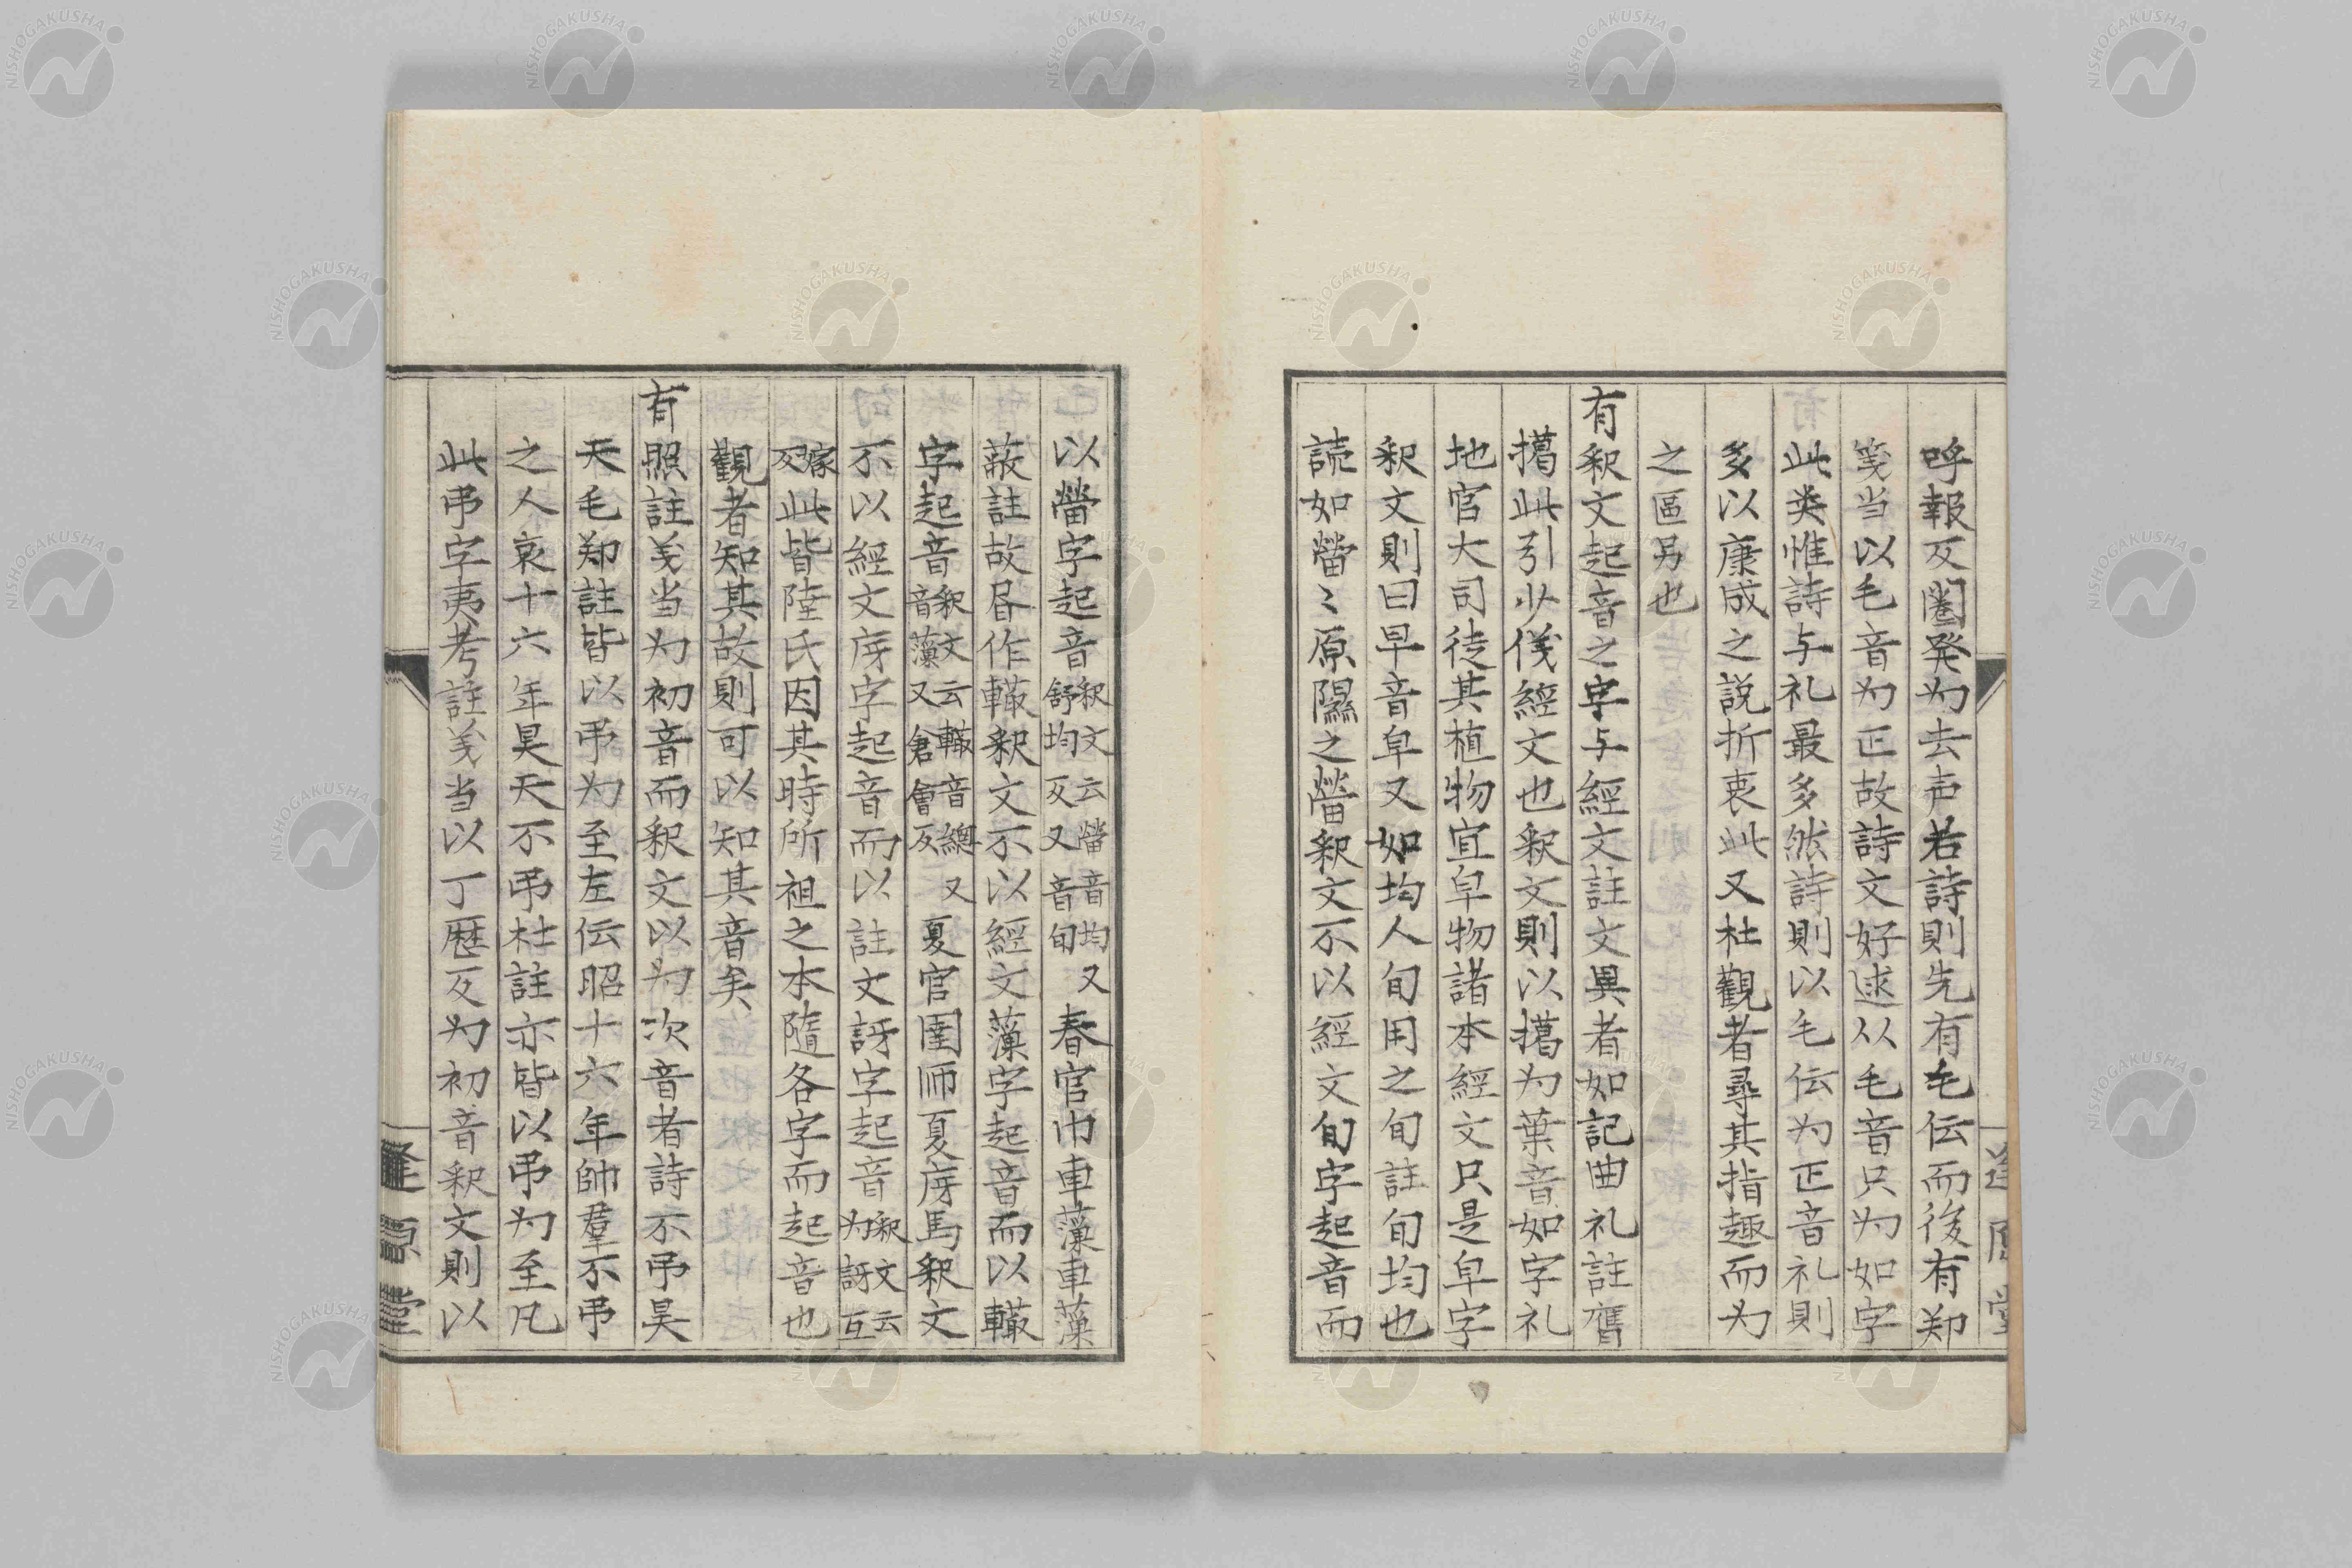 呼報反圏発為去声若詩則先有毛伝而後有郑
箋当以毛音為正故詩文好逑从毛音只為如字
此类惟詩与礼最多然詩則以毛伝為正音礼則
多以康成之説折衷此又杜觀者尋其指趣而為
之區另也
有釈文起音之字与經文註文異者如記曲礼註
擖此引少儀經文也釈文則以擖為葉音如字礼
地官大司徒其植物宜皁物諸本經文只是皁字
釈文則曰早音皁又如均人旬用之旬註旬均也
読如㽦〻原隰之㽦釈文不以經文旬字起音而
以㽦字起音釈文云㽦音均又舒均反又音旬春官巾車藻車藻
蔽註故昬作轍釈文不以經文藻字起音而以轍
字起音釈文云轍音總又音藻又倉會反夏官圉师夏庌馬釈文
不以經文庌字起音而以註文訝字起音釈文云为訝互
嫁反此皆陸氏因其時所祖之本隨各字而起音也
觀者知其故則可以知其音矣
有照註义当为初音而釈文以为次音者詩不弔昊
天毛郑註皆以弔为至左伝昭十六年帥羣不弔
之人哀十六年昊天不弔杜註亦皆以弔为至凡
此弔字夷考註义当以丁歴反为初音釈文則以
逢原堂